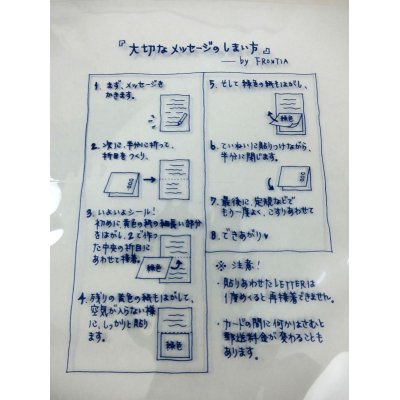 『大切なメッセージのしまい方』
— by FRONTIA
1. まず、メッセージを
かきます。
2. 次に、半分に折って、
折目をつくり、
3. いよいよシール!
初めに、黄色の紙の細長い部分
をはがし、2で作っ
た中央の折目に
あわせて接着。
緑色
4. 残りの黄色の紙をはがして、
空気が入らない様
に、しっかりと貼り
ます。
緑色
5. そして緑色の紙をはがし、
緑色
6. ていねいに貼りつけながら、
半分に閉じます。
7. 最後に、定規などで
もう一度よく、こすりあわせて
8. できあがり♥
※ 注意!
・貼りあわせたLETTERは
1度めくると再接着できません。
・カードの間に何かはさむと
郵送料金が変わることも
あります。